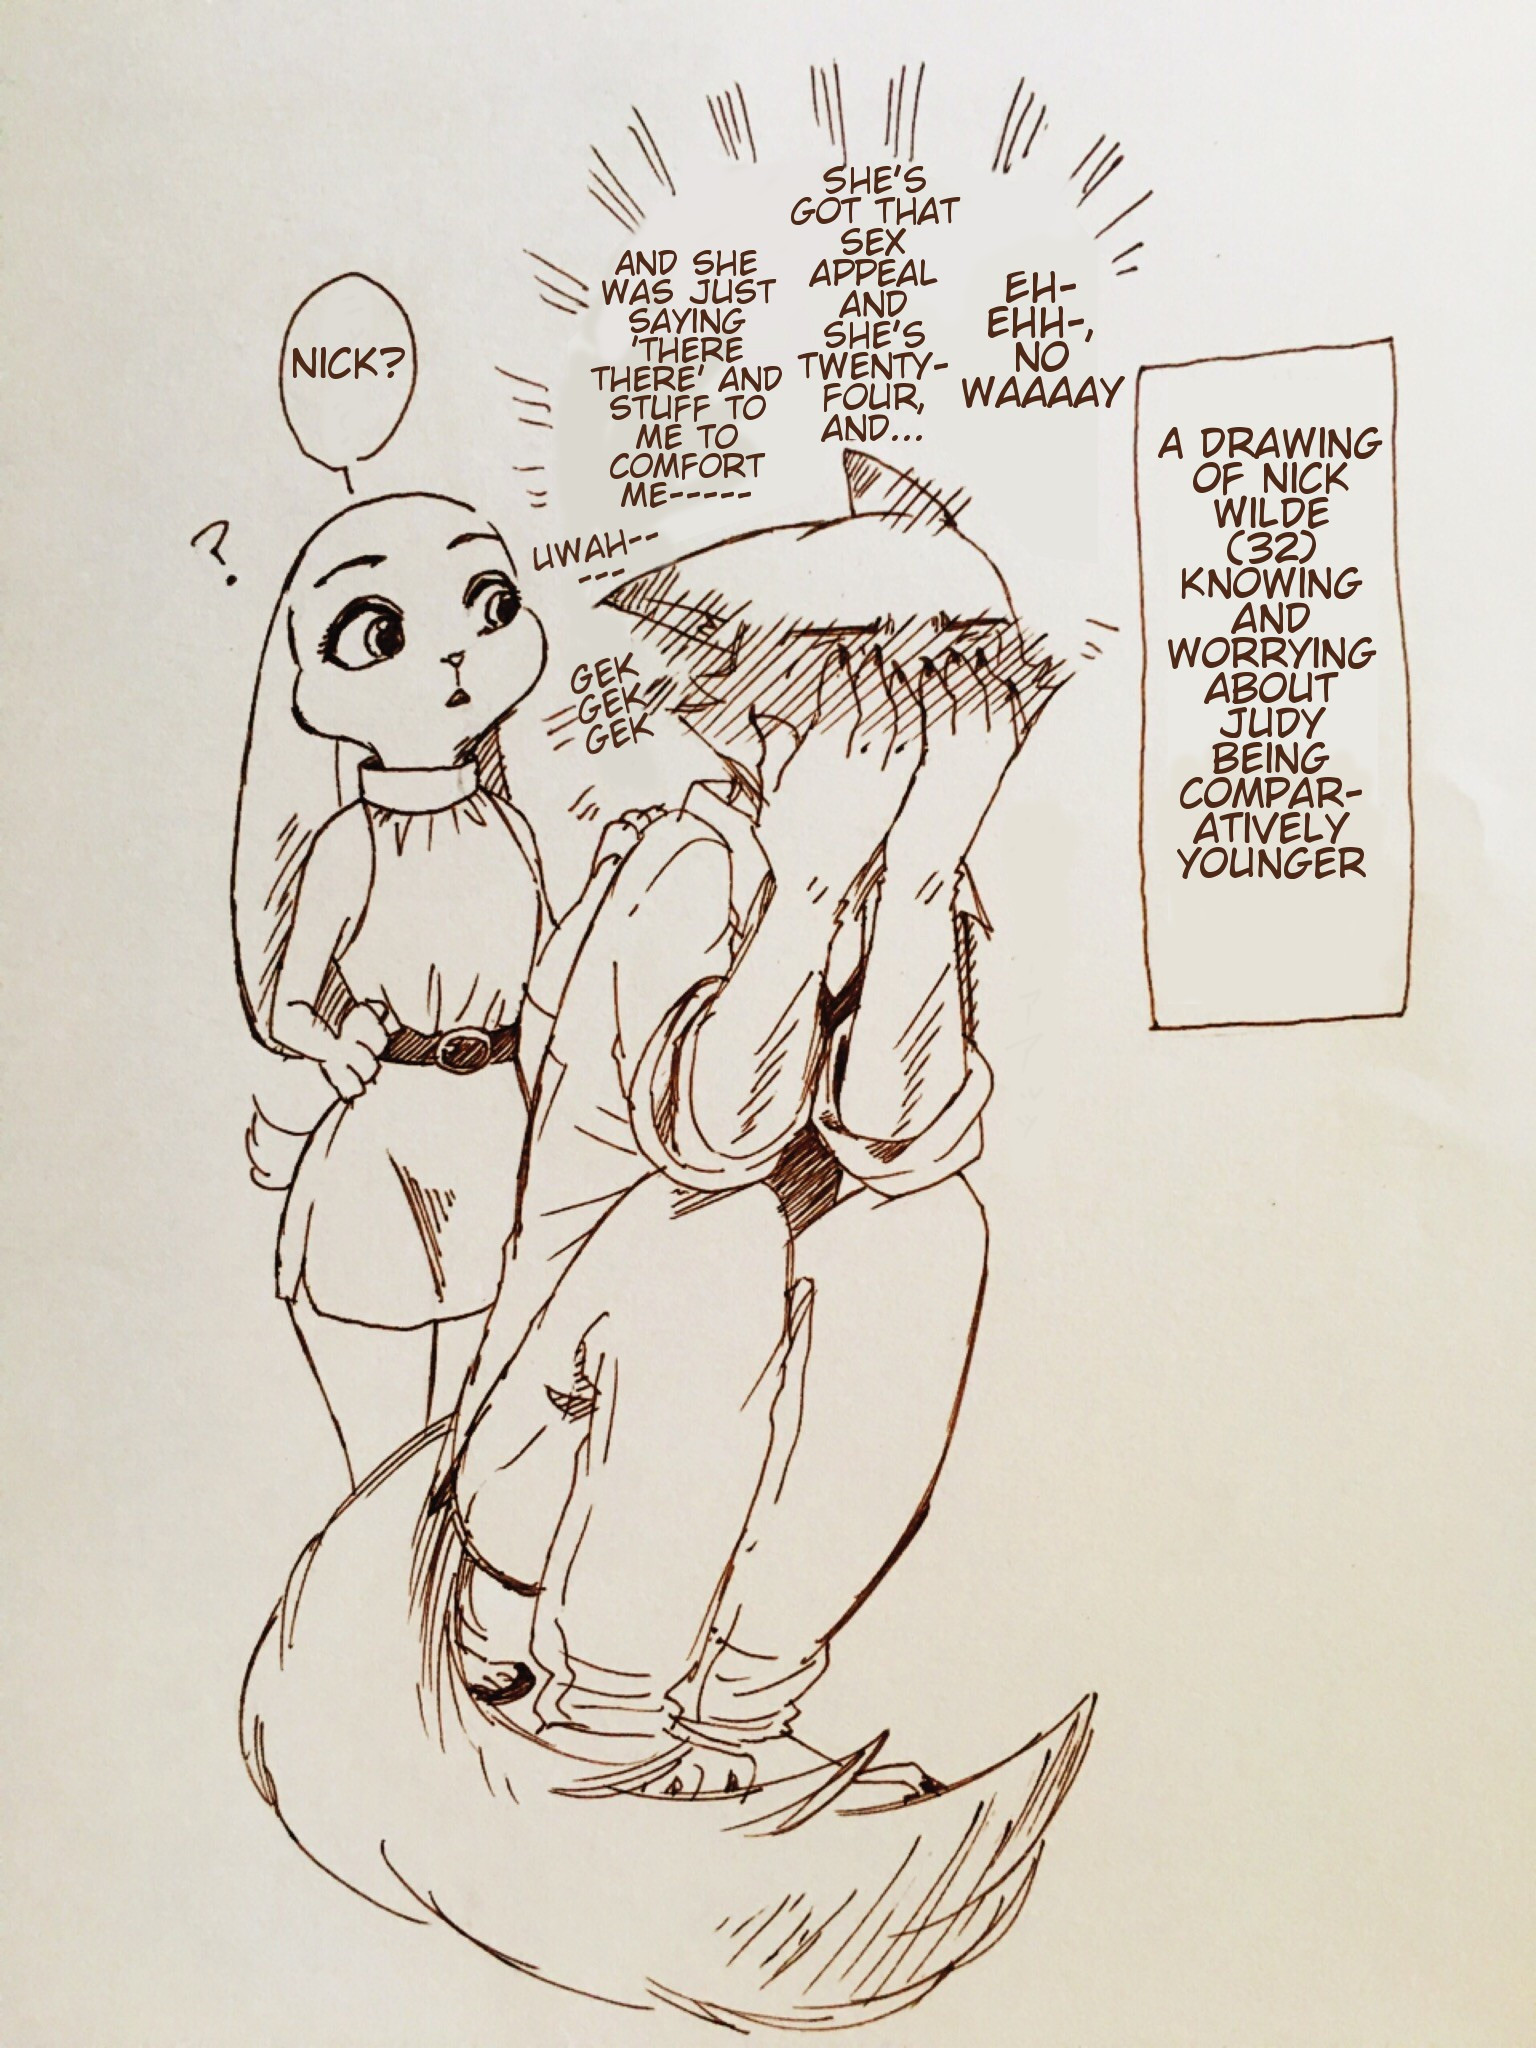 A DRAWING
OF NICK
WILDE
(32)
KNOWING
AND
WORRYING
ABOUT
JUDY
BEING
COMPAR-
ATIVELY
YOUNGER
EH-
EHH-,
NO
WAAAAY
SHE'S
GOT THAT
SEX
APPEAL
AND
SHE'S
TWENTY-
FOUR,
AND...
AND SHE
WAS JUST
SAYING
'THERE
THERE' AND
STUFF TO
ME TO
COMFORT
ME-----
UWAH--
---
GEK
GEK
GEK
NICK?
?